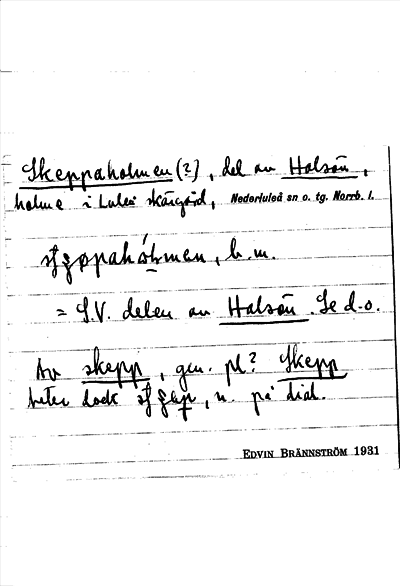 Skeppaholmen (?), del av Halsön,
holme i Luleå skärgård, Nederluleå sn o. tg. Norrb. l.
b. m.
= S.V. delen av Halsön. Se d.o.
Av skepp, gen. pl? Skepp
heter dock n. på dial.
EDVIN BRÄNNSTRÖM 1931